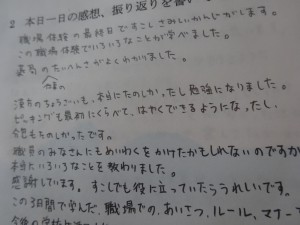 2 本日一日の感想、振り返りを書い
職場体験の最終日ですこしさみしいかんじがします。
この職場体験でいろいろなことが学べました。
薬局のたいへんさがよくわかりました。
漢方のちょうごいも、本当にたのしかったし勉強になりました。
ピッキングも最初にくらべて、はやくできるようになったし、
会話もたのしかったです。
職員のみなさんにもめいわくをかけたかもしれないのですが
本当にいろいろなことを教わりました。
感謝しています。すこしでも役に立っていたらうれしいです。
この3日間で学んだ、職場での、あいさつ、ルール、マナーで